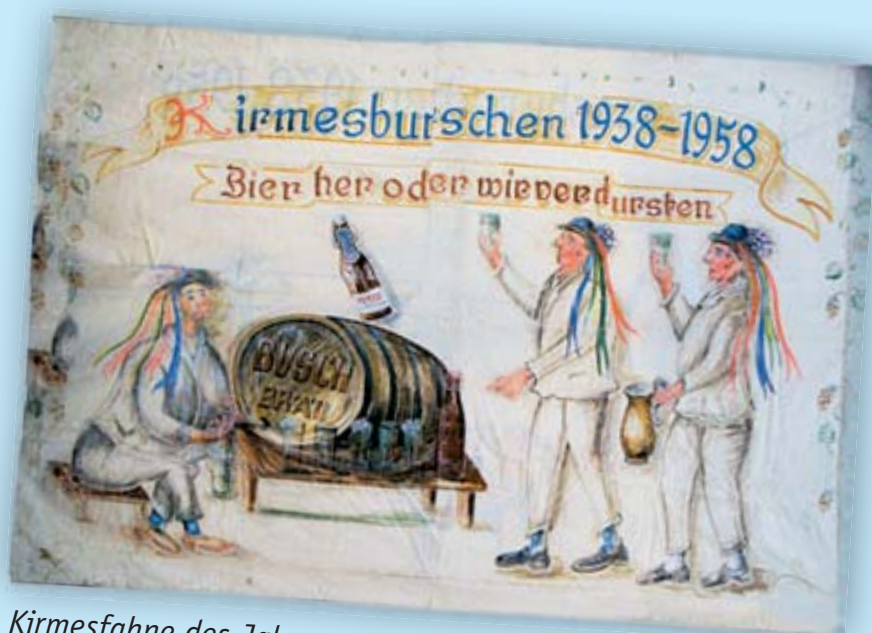 Kirmesburschen 1938-1958
Bier her oder wir verdursten
BUSCH
BRÄU
Kirmesfahne des